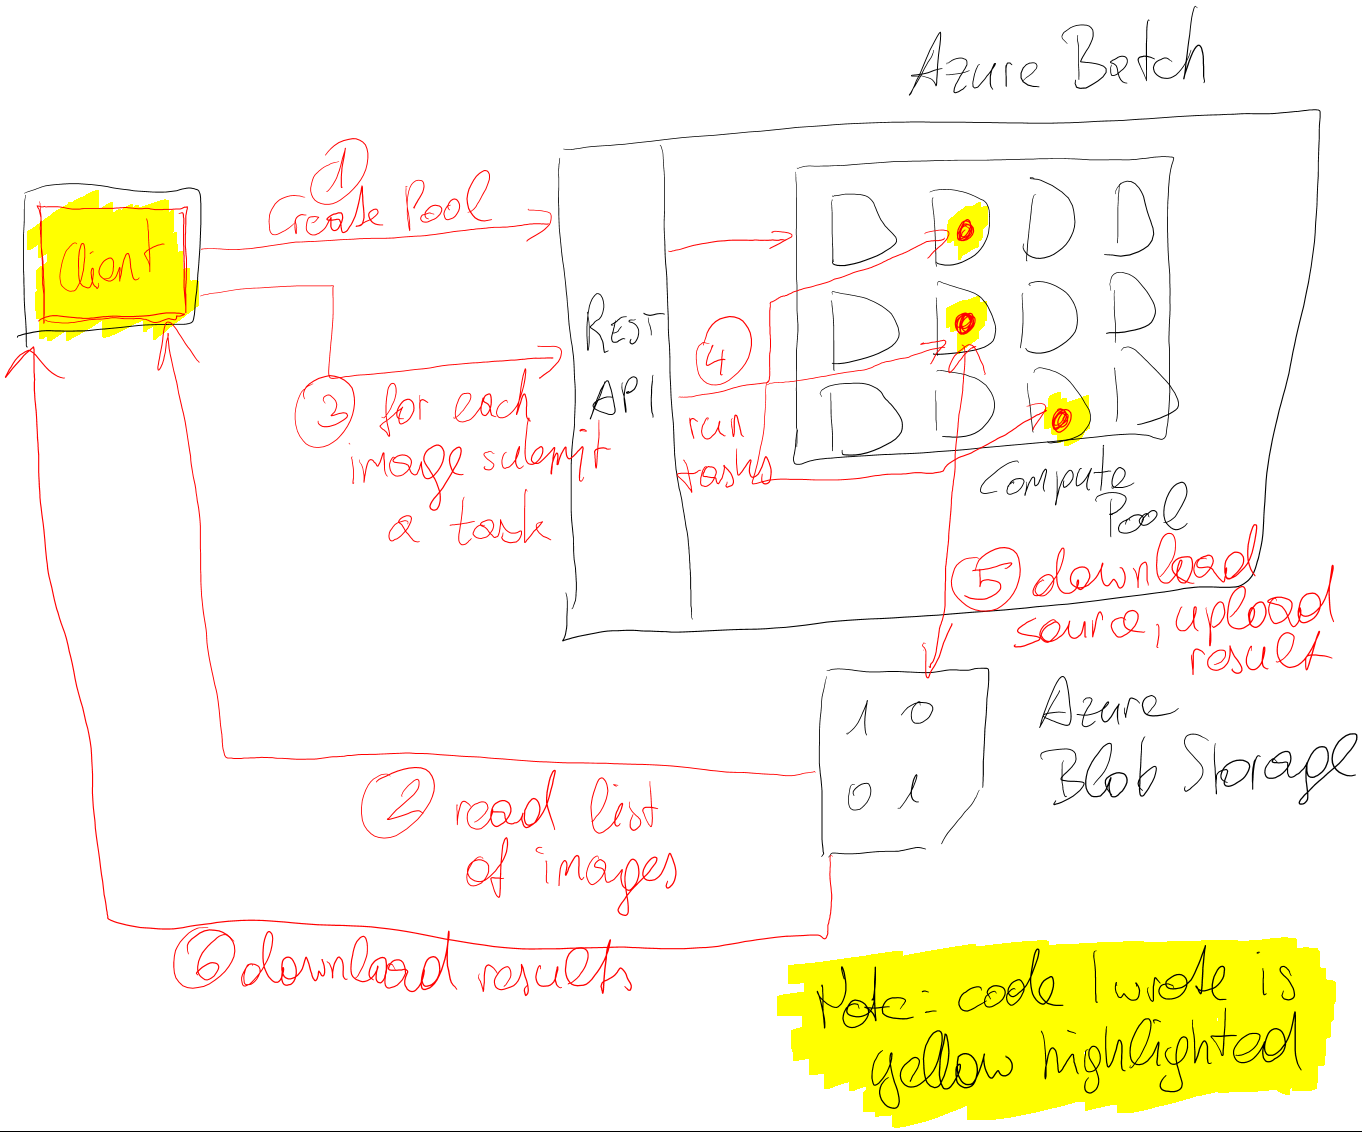 Azure Batch
1
Create Pool
Client
REST
API
4
run
tasks
3 for each
image submit
a task
Compute
Pool
5 download
source, upload
result
1 0
0 1
Azure
Blob Storage
2 read list
of images
6 download results
Note: code I wrote is
yellow highlighted